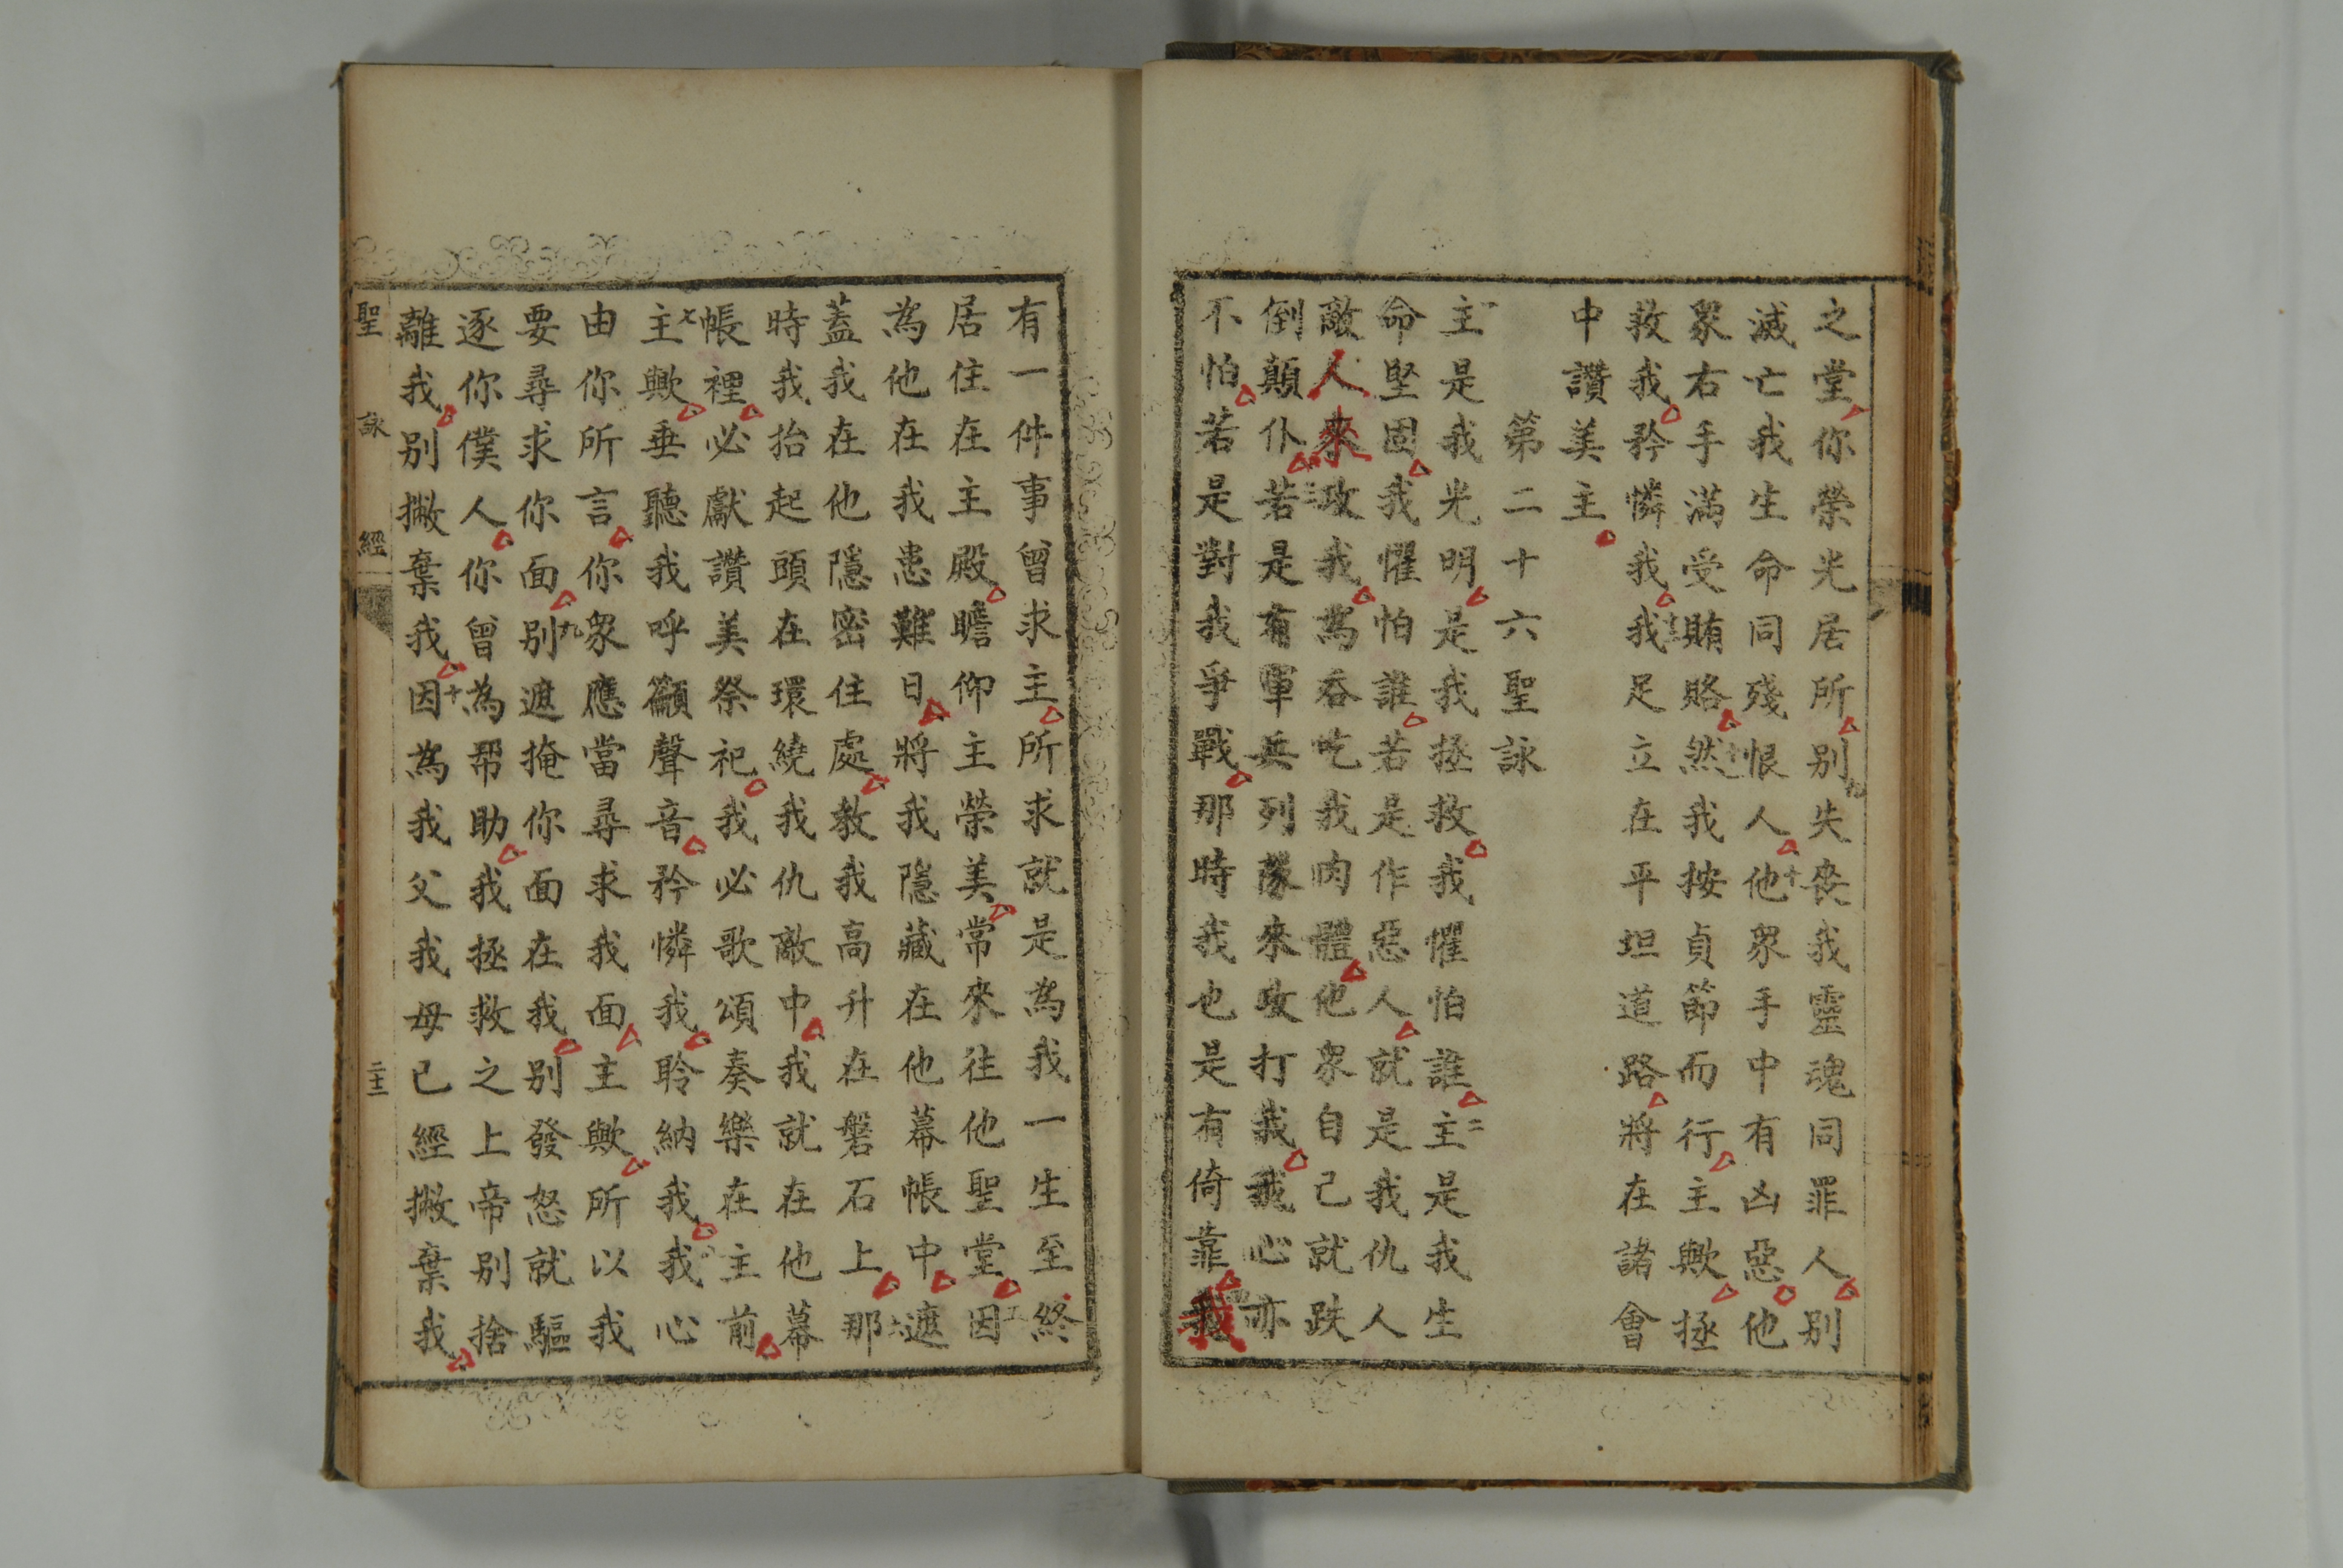 之堂你榮光居所別失喪我靈魂同罪人別
滅亡我生命同殘恨人他眾手中有凶惡他
眾右手滿受賄賂然我按貞節而行主歟拯
救我矜憐我我足立在平坦道路將在諸會
中讚美主
第二十六聖詠
主是我光明是我拯救我懼怕誰主是我生
命堅固我懼怕誰若是作惡人就是我仇人
敵人來攻我為吞吃我肉體他眾自己就跌
倒顛仆若是有軍兵列隊來攻打我我心亦
不怕若是對我爭戰那時我也是有倚靠我
有一件事曾求主所求就是為我一生至終
居住在主殿瞻仰主榮美常來往他聖堂因
為他在我患難日將我隱藏在他幕帳中遮
蓋我在他隱密住處教我高升在磐石上那
時我抬起頭在環繞我仇敵中我就在他幕
帳裡必獻讚美祭祀我必歌頌奏樂在主前
主歟垂聽我呼籲聲音矜憐我聆納我我心
由你所言你眾應當尋求我面主歟所以我
要尋求你面別遮掩你面在我別發怒就驅
逐你僕人你曾為帮助我拯救之上帝別捨
離我別撇棄我因為我父我母已經撇棄我
聖詠經 二十二